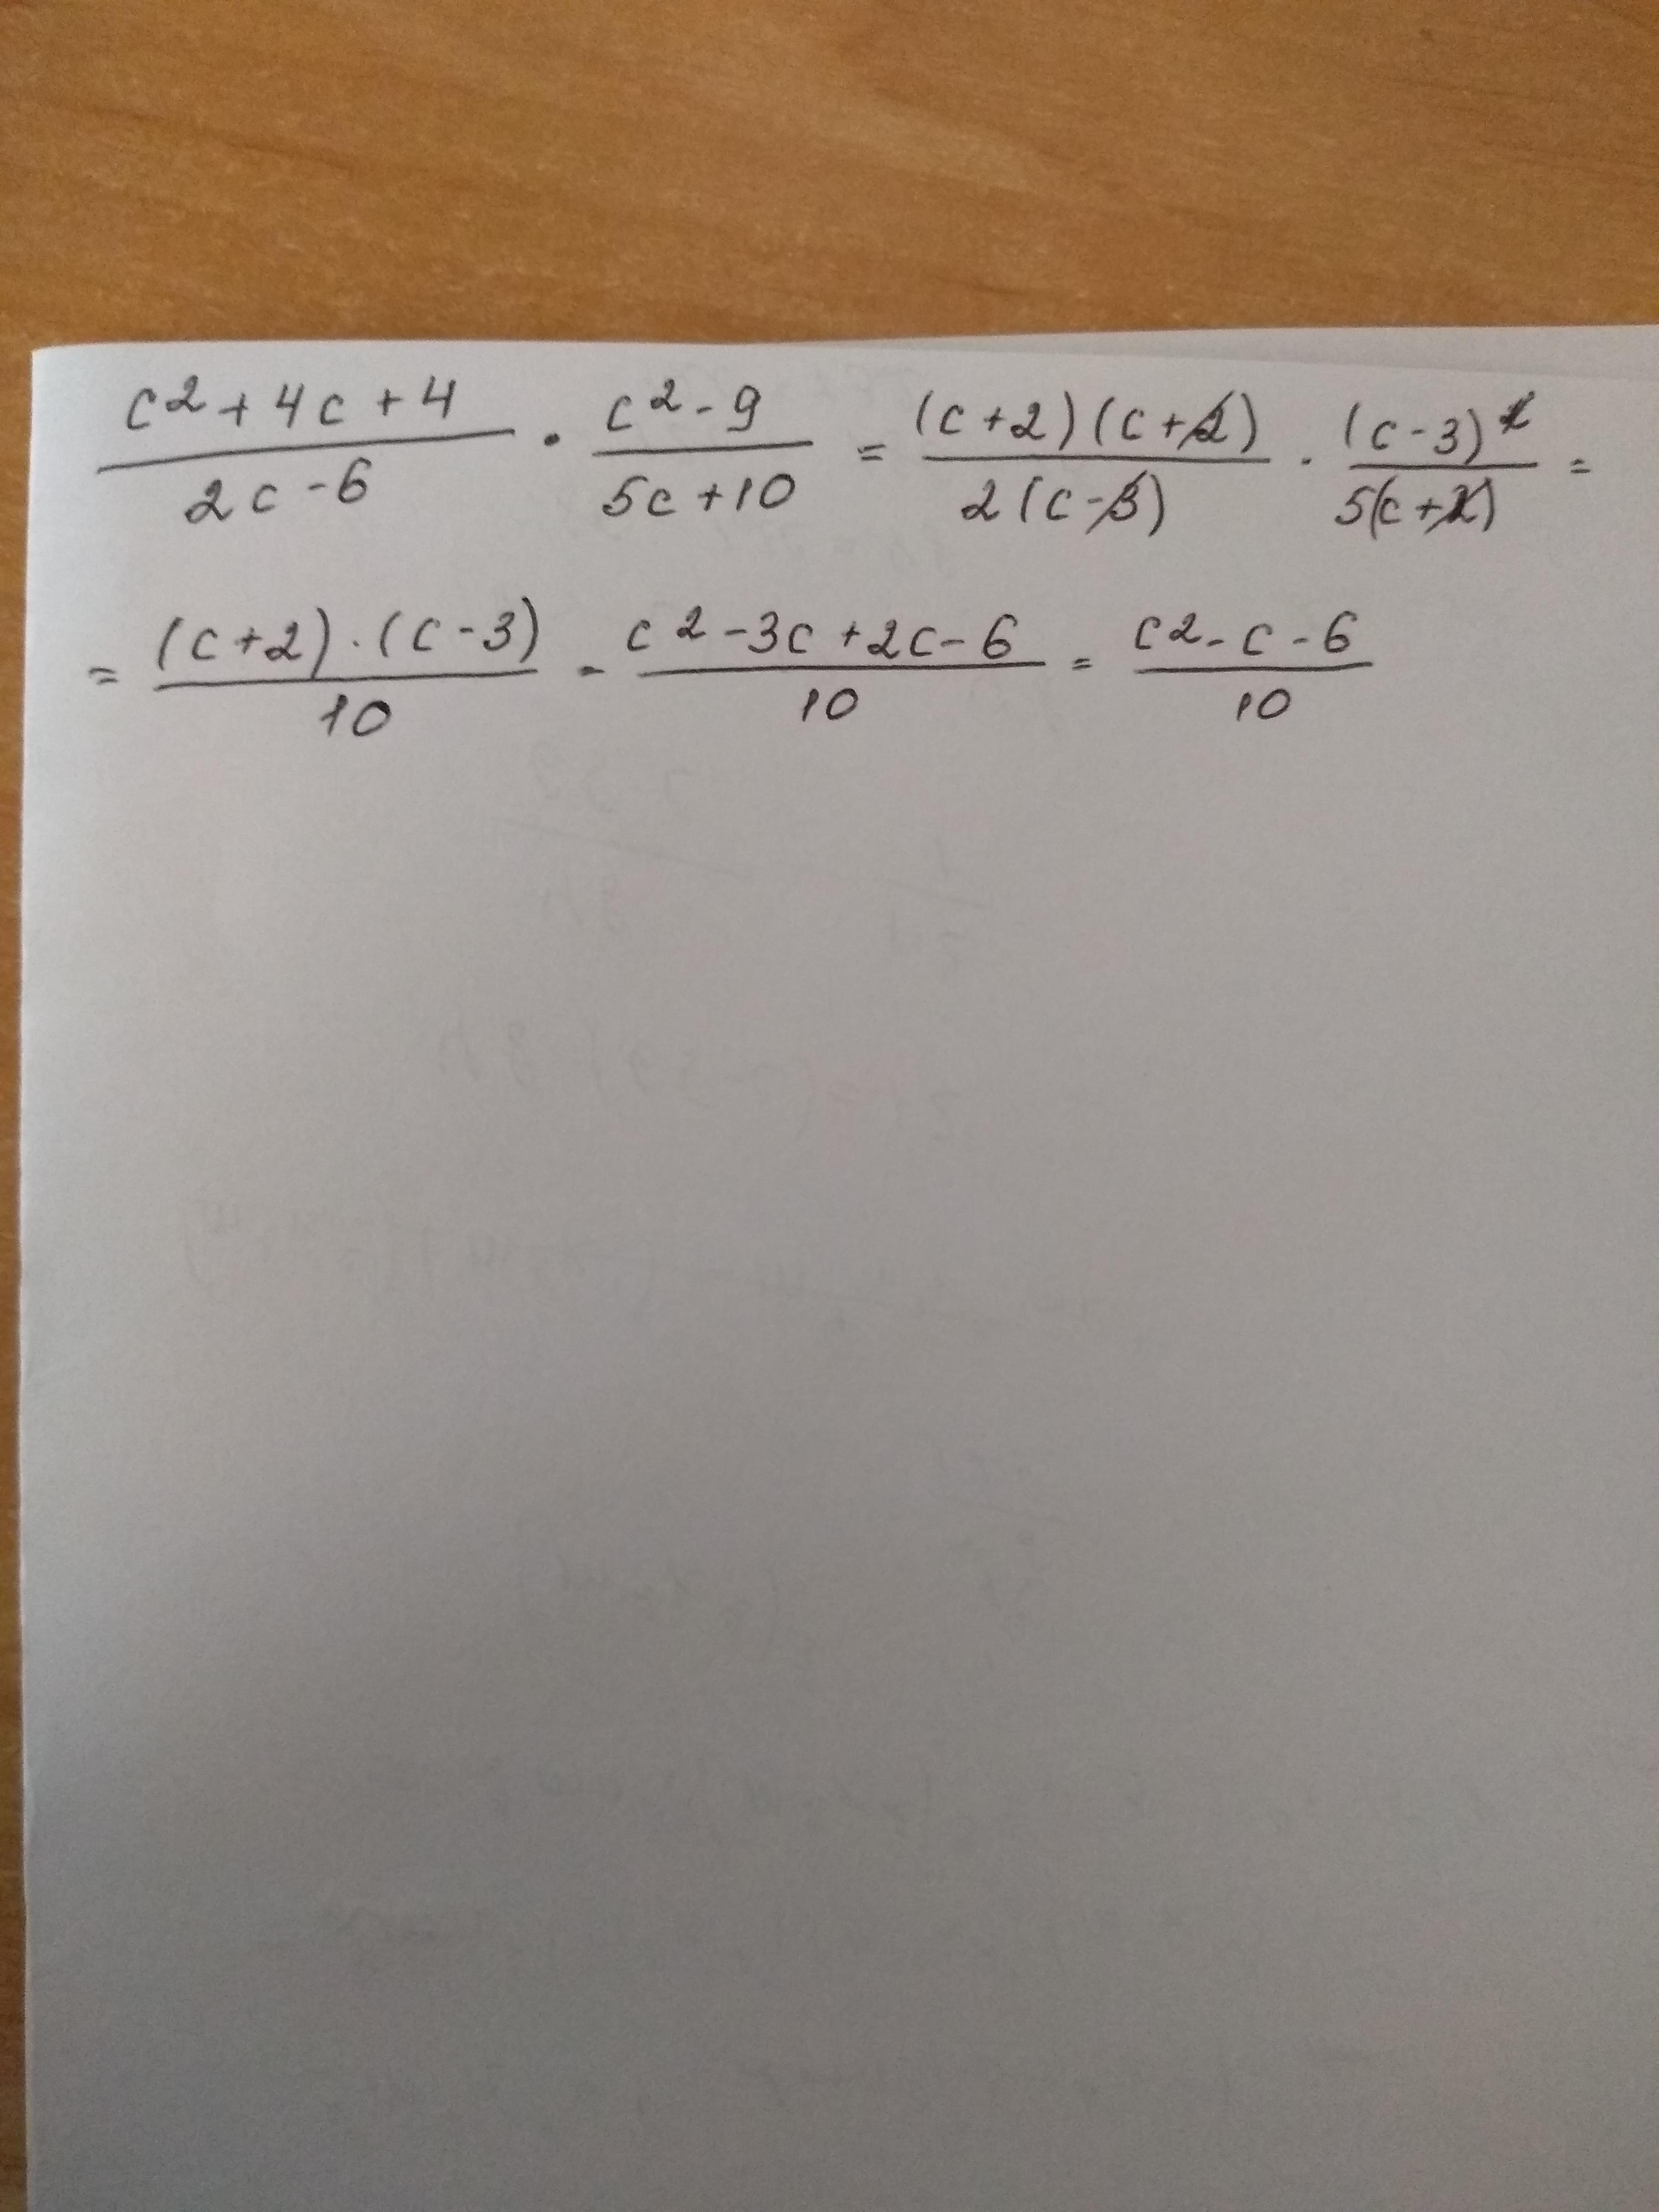 (c² + 4c + 4)/(2c - 6) · (c² - 9)/(5c + 10) = ((c + 2)(c + 2))/(2(c - 3)) · (c - 3)²/(5(c + 2)) =
= ((c + 2) · (c - 3))/10 = (c² - 3c + 2c - 6)/10 = (c² - c - 6)/10